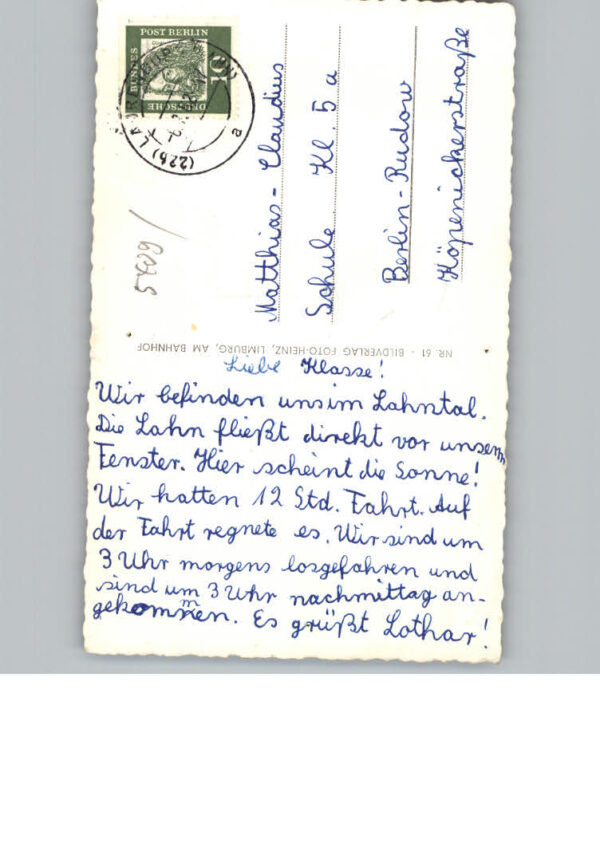 DEUTSCHE
BUNDES
POST BERLIN
10
(22b) L
a
5409/
Matthias-Claudius
Schule Kl. 5a
Berlin-Rudow
Köpenickerstraße
NR. 61 · BILDVERLAG FOTO-HEINZ, LIMBURG, AM BAHNHOF
Liebe Klasse!
Wir befinden uns im Lahntal.
Die Lahn fließt direkt vor unserm
Fenster. Hier scheint die Sonne!
Wir hatten 12 Std. Fahrt. Auf
der Fahrt regnete es. Wir sind um
3 Uhr morgens losgefahren und
sind um 3 Uhr nachmittag an-
gekommen. Es grüßt Lothar!